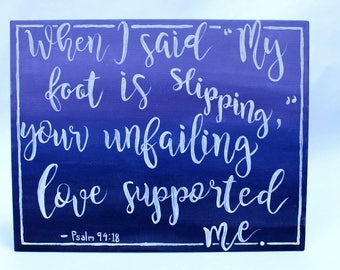 When I said "My
foot is slipping,"
your unfailing
love supported
me.
- Psalm 94:18